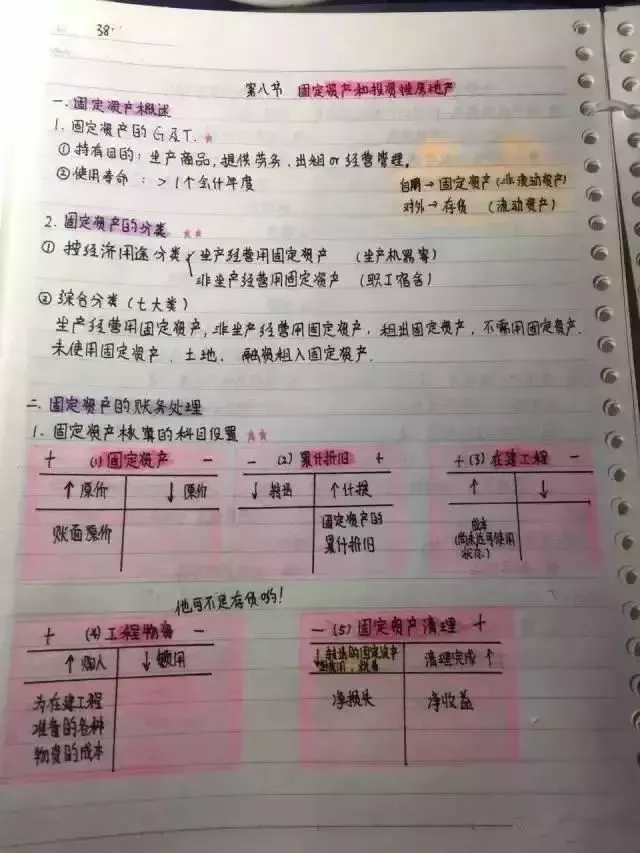 38.
第八节 固定资产和投资性房地产
一. 固定资产概述
1. 固定资产的 G&T. ★
① 持有目的: 生产商品, 提供劳务、出租 or 经营管理.
② 使用寿命: >1个会计年度
自用 → 固定资产 (非流动资产)
对外 → 存货 (流动资产)
2. 固定资产的分类 ★★
① 按经济用途分类 生产经营用固定资产 (生产机器等)
非生产经营用固定资产 (职工宿舍)
② 综合分类 (七大类)
生产经营用固定资产, 非生产经营用固定资产, 租出固定资产, 不需用固定资产.
未使用固定资产、土地、融资租入固定资产.
二. 固定资产的账务处理
1. 固定资产核算的科目设置 ★★
+ (1) 固定资产 -
↑原价 ↓原价
账面原价
- (2) 累计折旧 +
↓转出 ↑计提
固定资产的
累计折旧
+ (3) 在建工程 -
↑ ↓
成本
(尚未达可使用
状态.)
他可不是存货哟!
+ (4) 工程物资 -
↑购入 ↓领用
为在建工程
准备的各种
物资的成本
- (5) 固定资产清理 +
↓转出的固定资产
清理完成 ↑
净损失 净收益